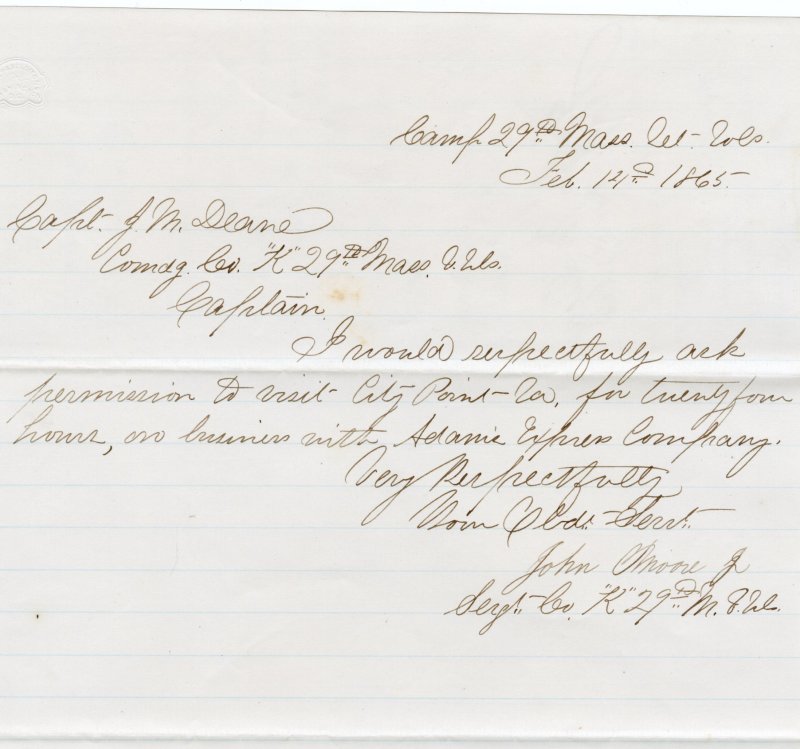 Camp 29th Mass. Vet. Vols.
Feb. 14th 1865.
Capt. J. M. Deane
Comdg. Co. "K" 29th Mass. V. Vols.
Captain,
I would respectfully ask
permission to visit City Point Va, for twenty four
hours, on business with Adams Express Company.
Very Respectfully
Your Obdt. Servt.
John Moore Jr
Sergt. Co. "K" 29th M. V. Vols.